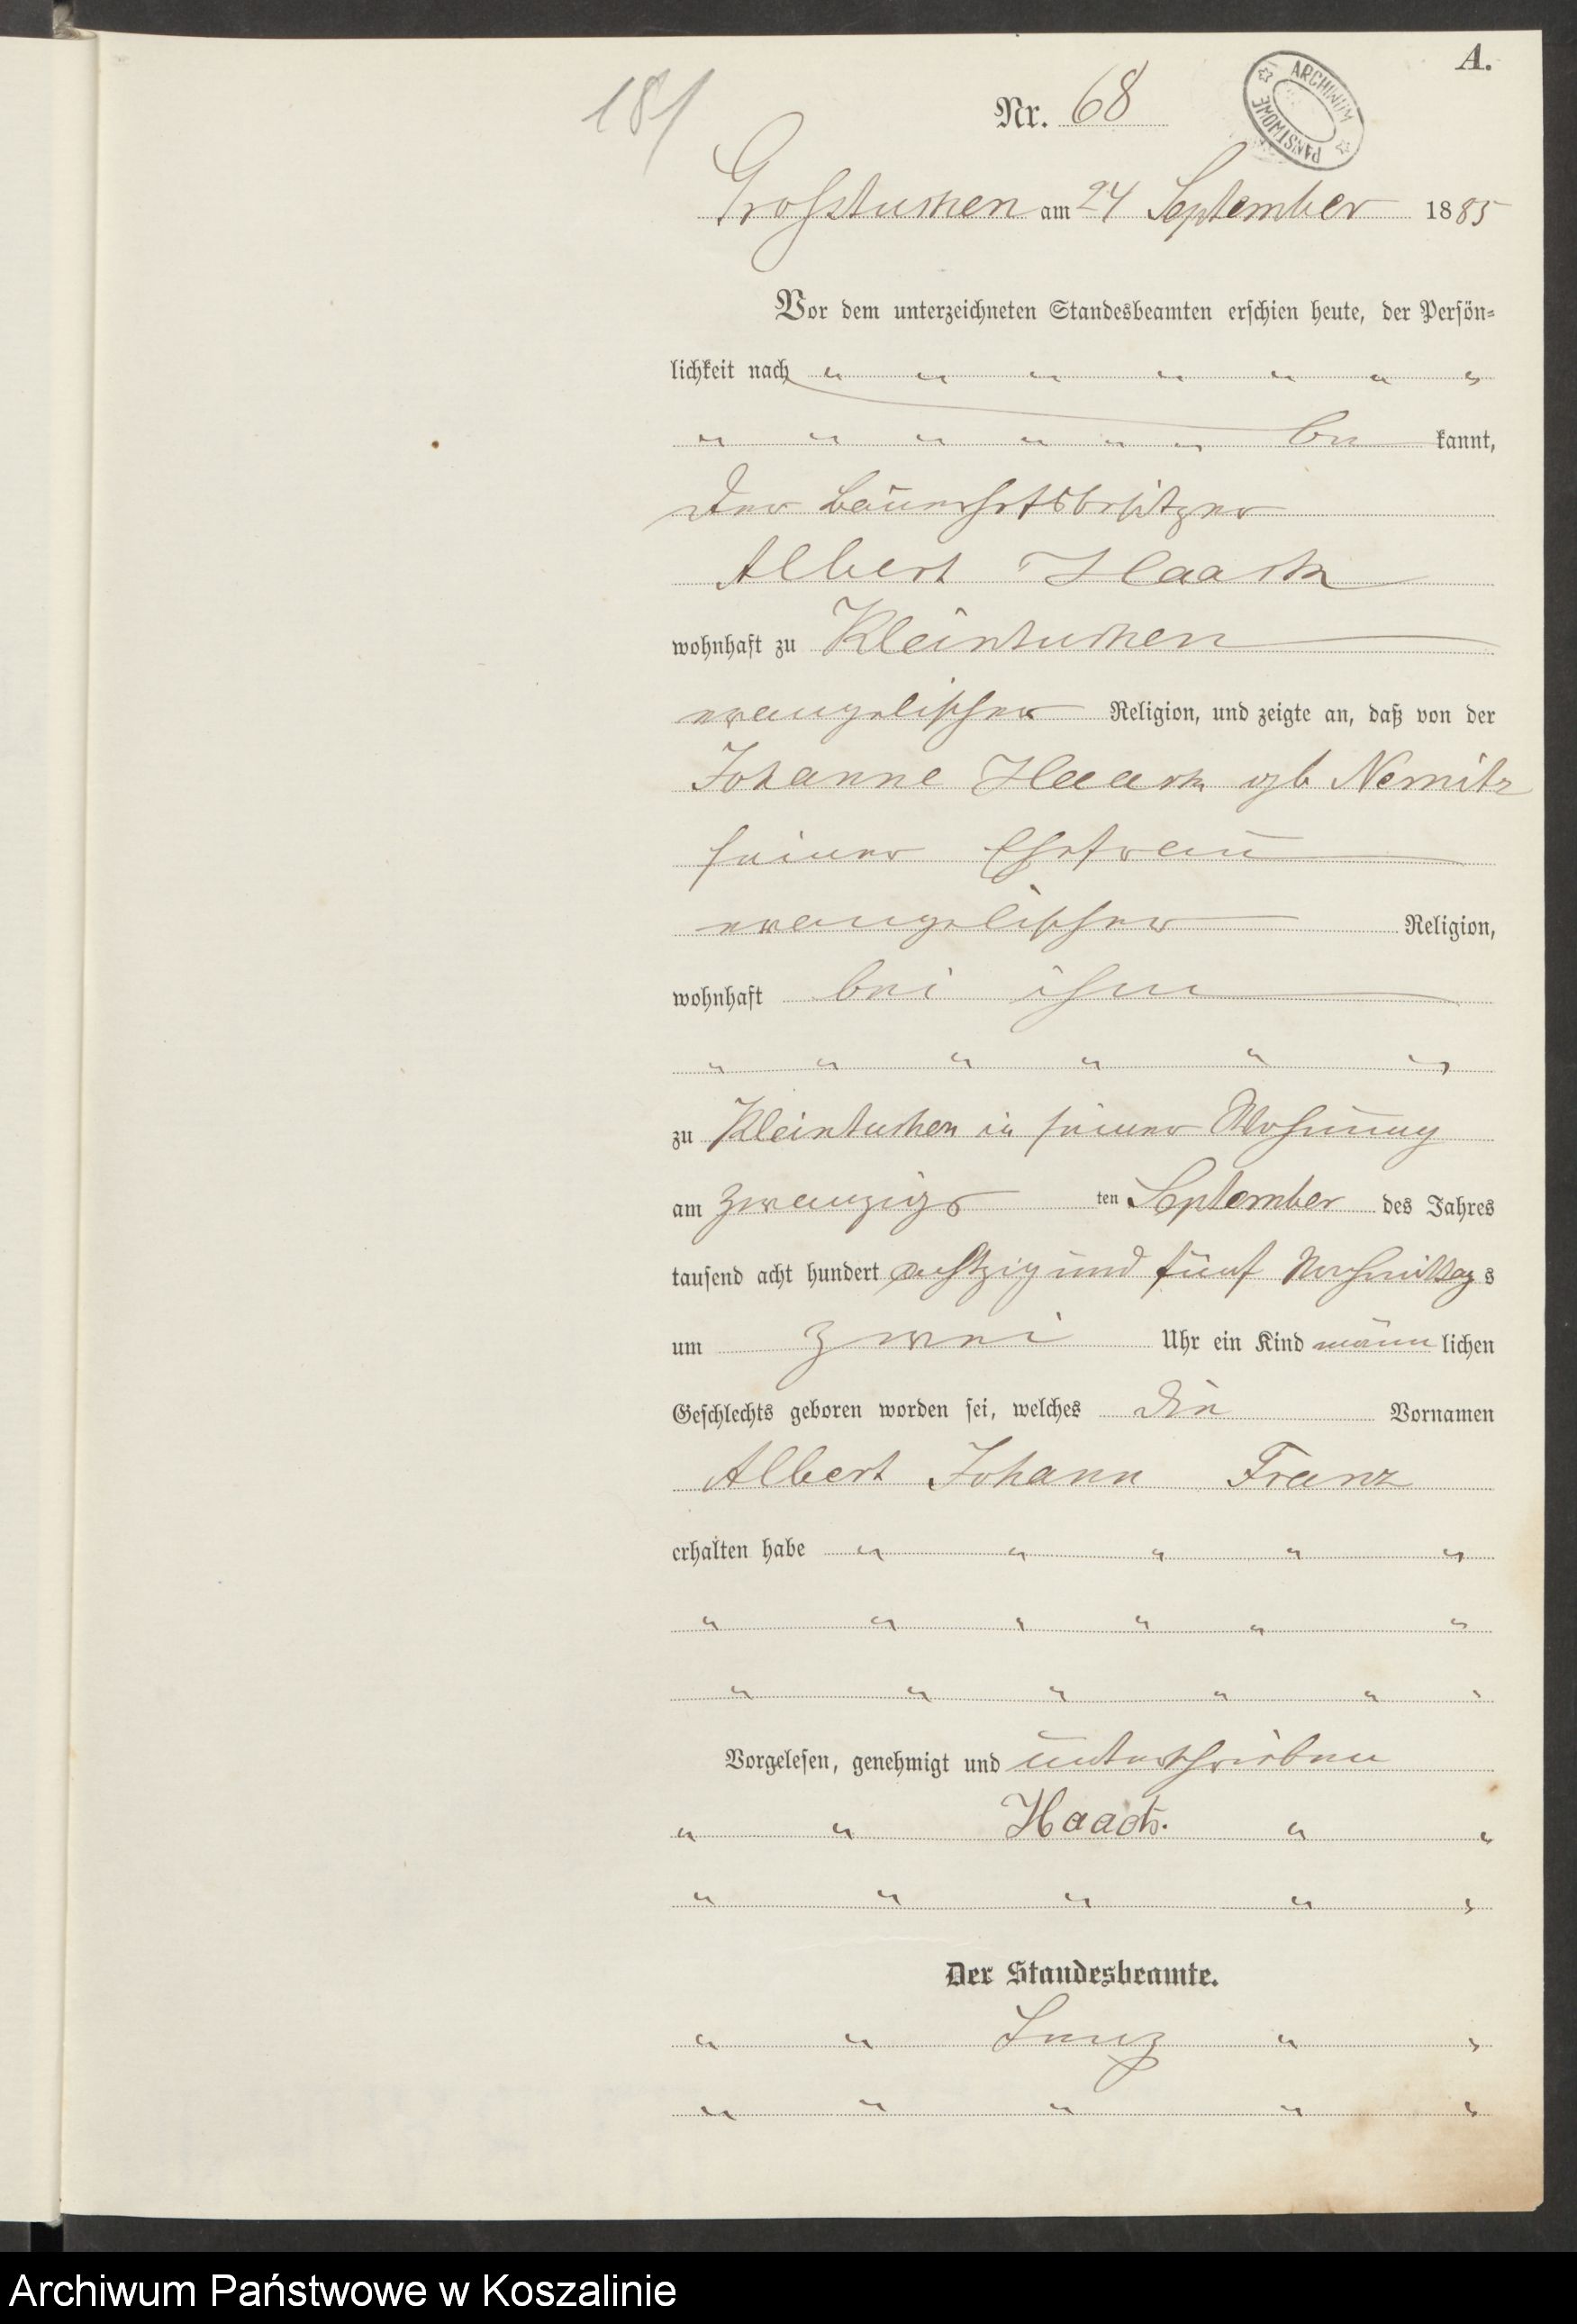 A.
181
Nr. 68
ARCHIWUM PAŃSTWOWE
Grosstuchen am 24 September 1885
Vor dem unterzeichneten Standesbeamten erschien heute, der Persön-
lichkeit nach
be kannt,
der Bauerhofsbesitzer
Albert Haack
wohnhaft zu Kleintuchen
evangelischer Religion, und zeigte an, daß von der
Johanne Haack geb Nemitz
seiner Ehefrau
evangelischer Religion,
wohnhaft bei ihm
zu Kleintuchen in seiner Wohnung
am zwanzigs ten September des Jahres
tausend acht hundert achtzig und fünf Nachmittag s
um zwei Uhr ein Kind männ lichen
Geschlechts geboren worden sei, welches die Vornamen
Albert Johann Franz
erhalten habe
Vorgelesen, genehmigt und unterschrieben
Haack.
Der Standesbeamte.
Archiwum Państwowe w Koszalinie